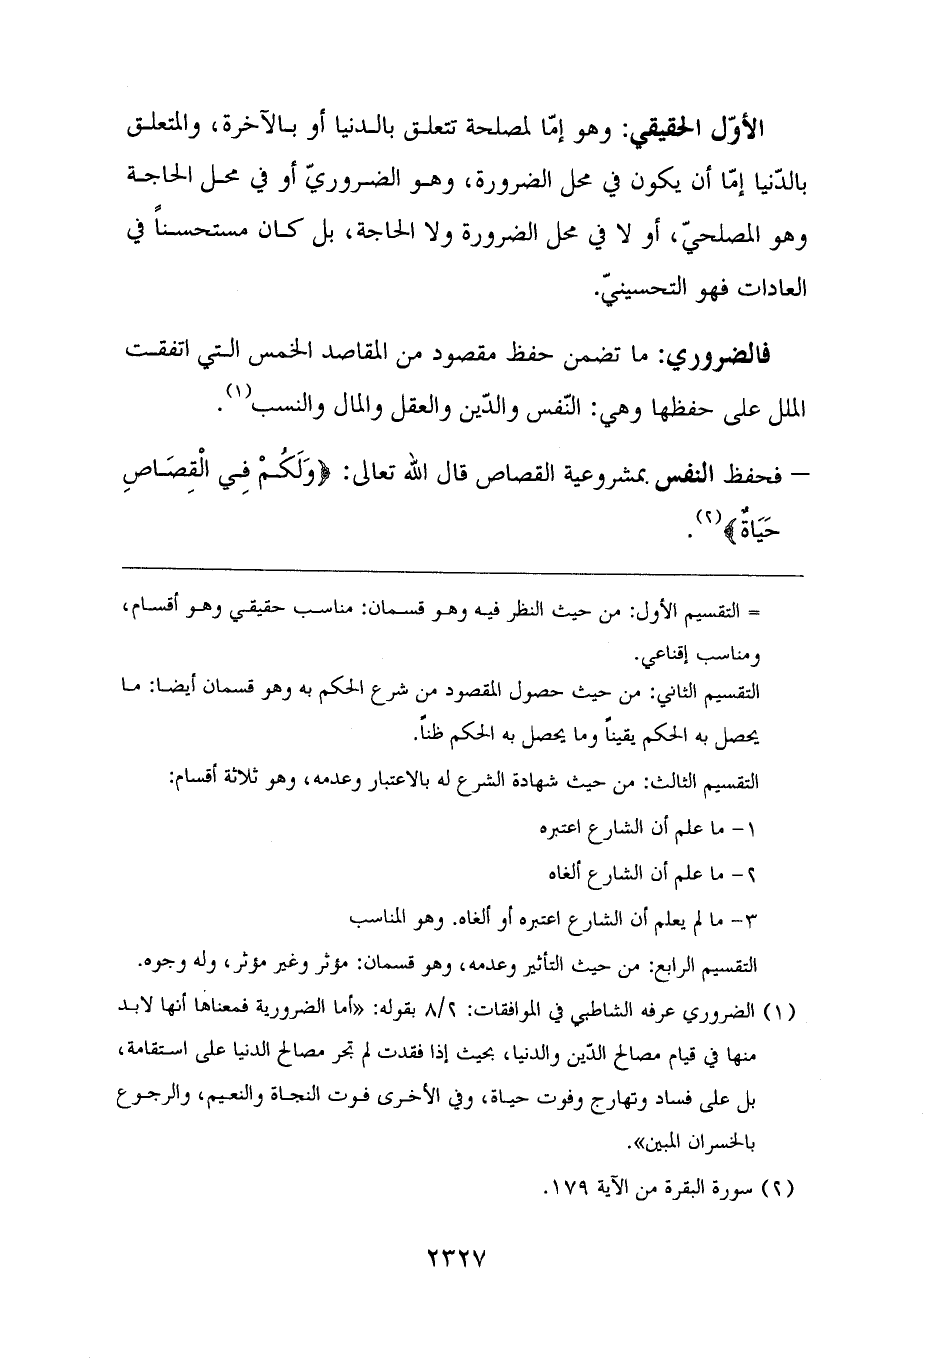 الأوّل الحقيقي: وهو إمّا لمصلحة تتعلق بالدنيا أو بالآخرة، والمتعلق
بالدّنيا إمّا أن يكون في محل الضرورة، وهو الضروريّ أو في محل الحاجة
وهو المصلحيّ، أو لا في محل الضرورة ولا الحاجة، بل كان مستحسناً في
العادات فهو التحسينيّ.
فالضروري: ما تضمن حفظ مقصود من المقاصد الخمس التي اتفقت
الملل على حفظها وهي: النّفس والدّين والعقل والمال والنسب(١).
– فحفظ النفس بمشروعية القصاص قال الله تعالى: ﴿وَلَكُمْ فِي الْقِصَاصِ
حَيَاةٌ﴾(٢).
= التقسيم الأول: من حيث النظر فيه وهو قسمان: مناسب حقيقي وهو أقسام،
ومناسب إقناعي.
التقسيم الثاني: من حيث حصول المقصود من شرع الحكم به وهو قسمان أيضا: ما
يحصل به الحكم يقيناً وما يحصل به الحكم ظناً.
التقسيم الثالث: من حيث شهادة الشرع له بالاعتبار وعدمه، وهو ثلاثة أقسام:
١– ما علم أن الشارع اعتبره
٢– ما علم أن الشارع ألغاه
٣– ما لم يعلم أن الشارع اعتبره أو ألغاه. وهو المناسب
التقسيم الرابع: من حيث التأثير وعدمه، وهو قسمان: مؤثر وغير مؤثر، وله وجوه.
(١) الضروري عرفه الشاطبي في الموافقات: ٨/٢ بقوله: «أما الضرورية فمعناها أنها لابد
منها في قيام مصالح الدّين والدنيا، بحيث إذا فقدت لم تجر مصالح الدنيا على استقامة،
بل على فساد وتهارج وفوت حياة، وفي الأخرى فوت النجاة والنعيم، والرجوع
بالخسران المبين».
(٢) سورة البقرة من الآية ١٧٩.
٢٣٢٧